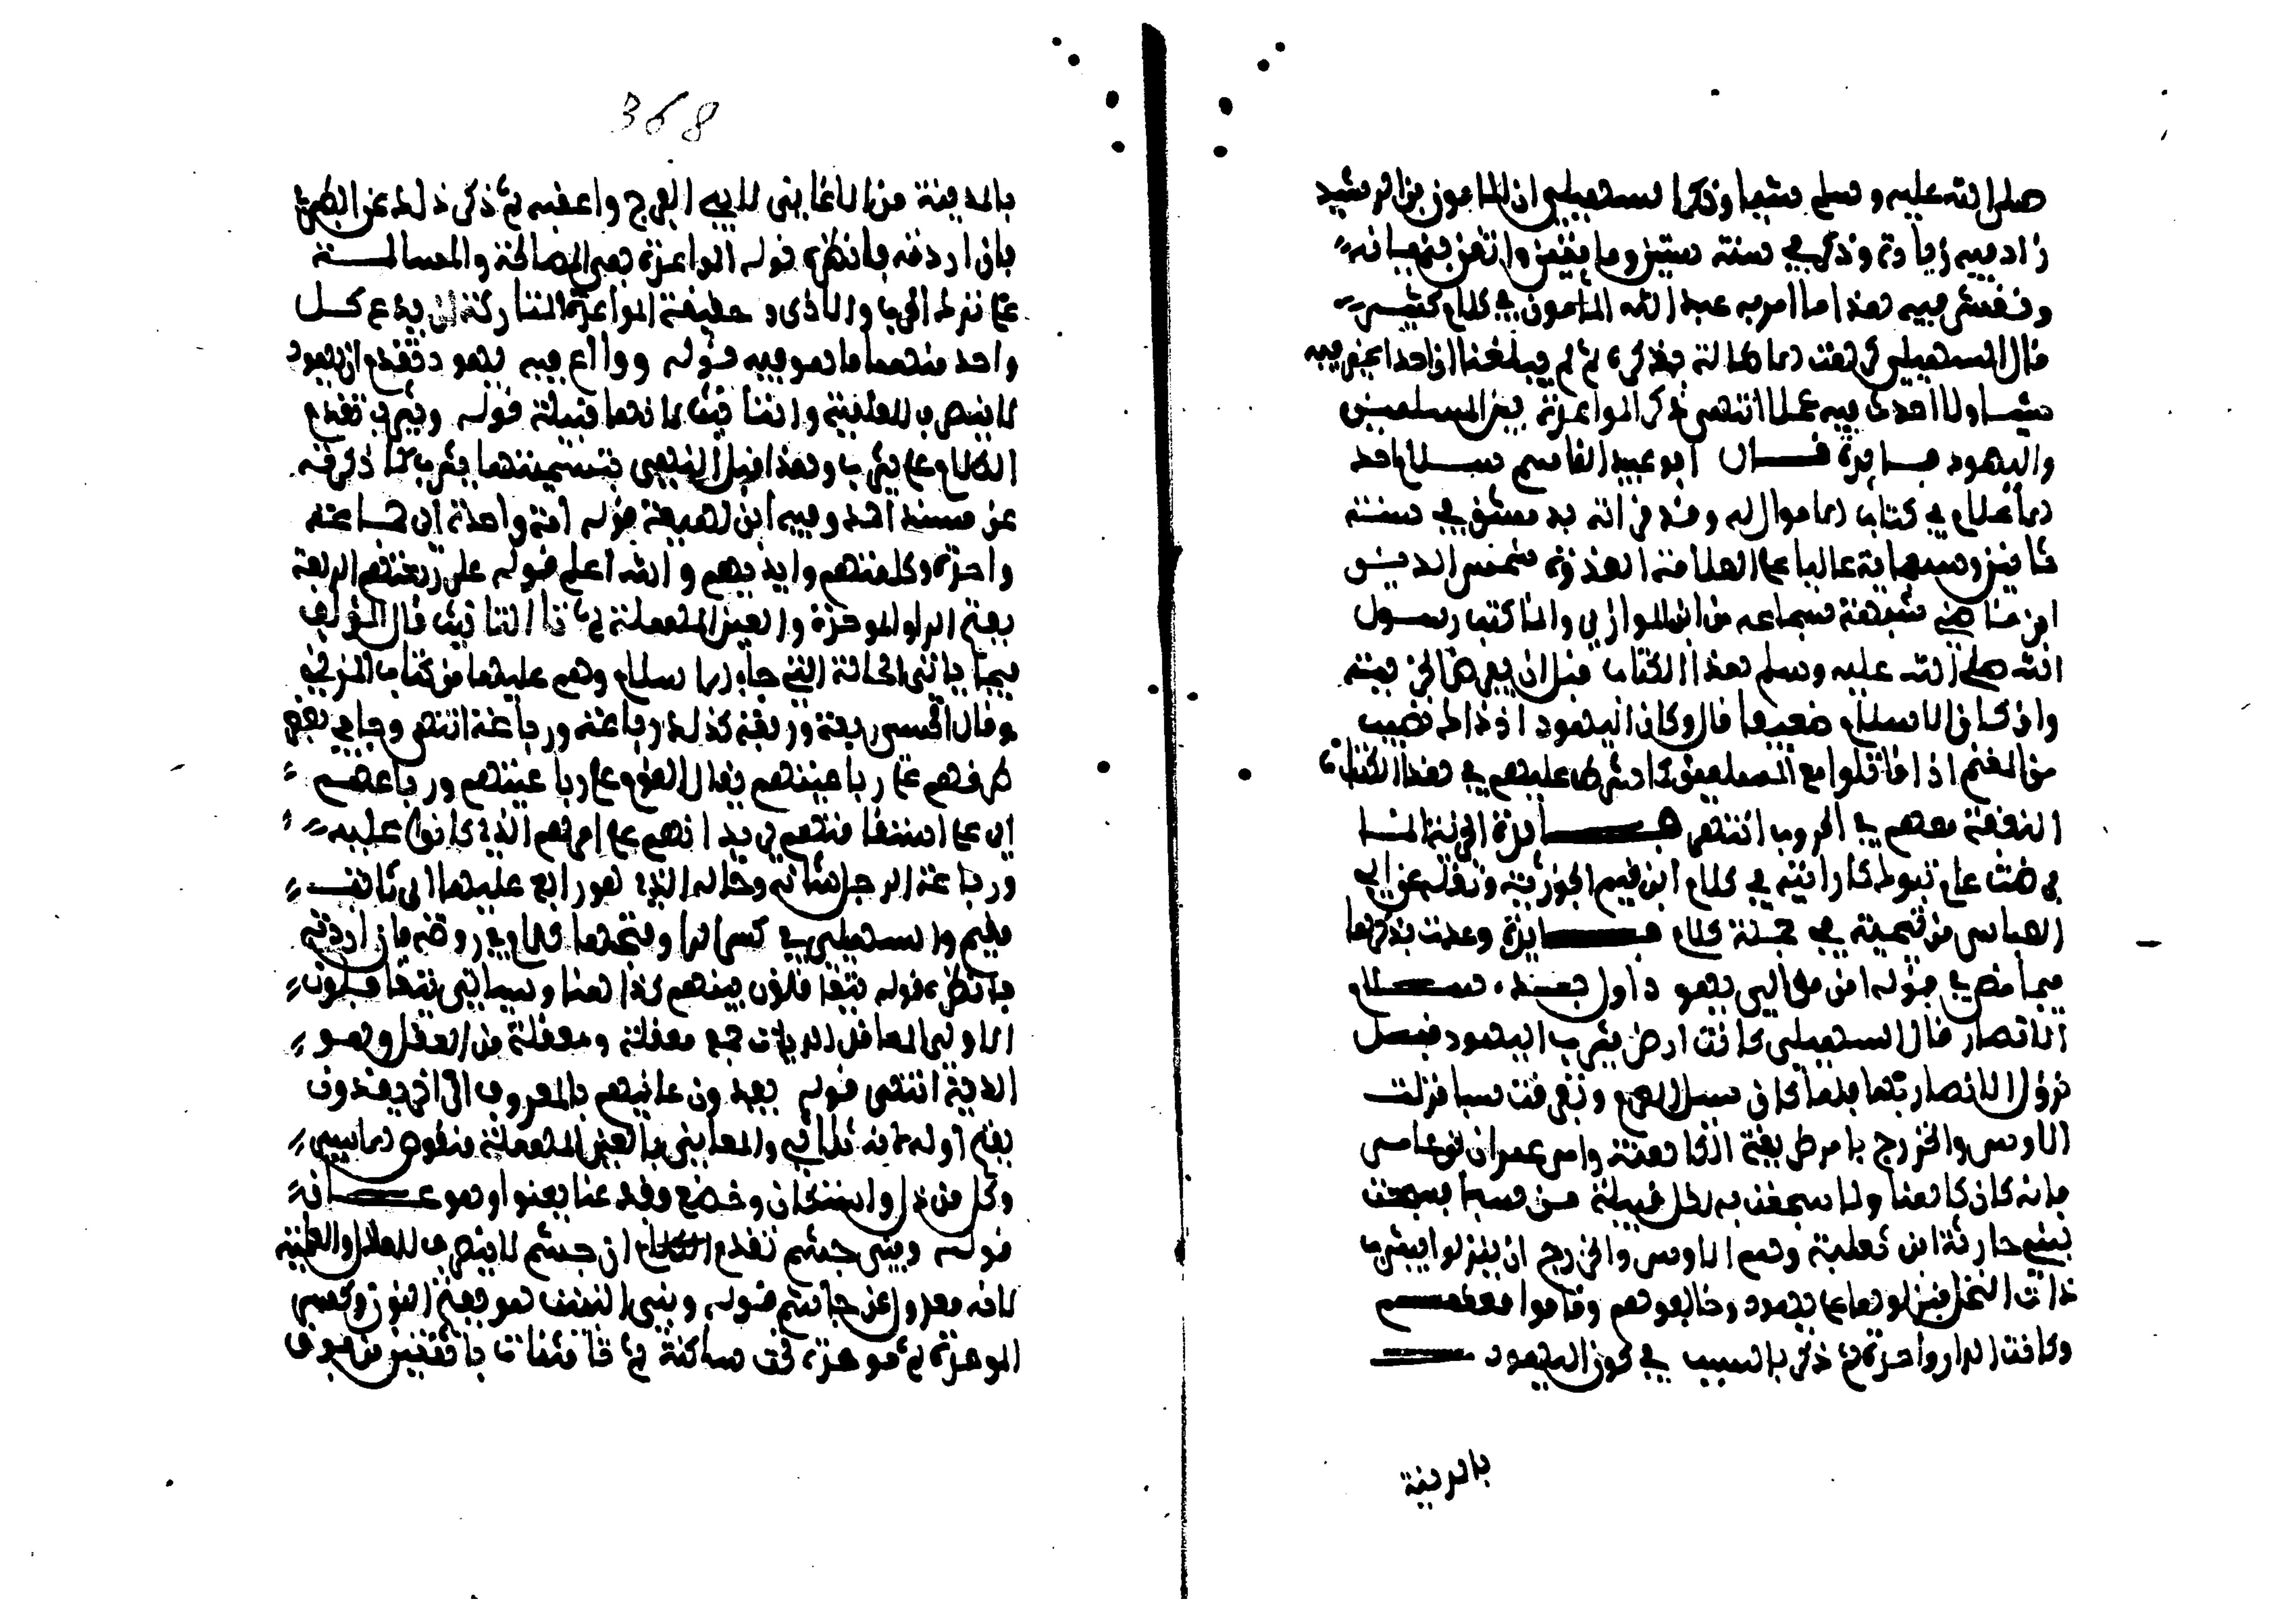 صلى الله عليه وسلم شيئا وذكر السهيلي ان المامون بن الرشيد
زاد فيه زيادة وذكر في سنة ستين وماتين واتقن بنيانه
ونقش فيه هذا ما امر به عبد الله المامون في كلام كثير
قال السهيلي كرهت الاطالة بذكره ثم لم يبلغنا ان احدا غير فيه
شيئا ولا احدث فيه عملا انتهى ذكر الموادعة بين المسلمين
واليهود فايدة قال ابو عبيد القاسم بن سلام احد
الاعلام في كتاب الاموال له وقد قراته بدمشق في سنة
ثمانين وسبعماية عاليا على العلامة شمس الدين
سماعه من ابن الموازيني وانما كتب رسول
الله صلى الله عليه وسلم هذا الكتاب قبل ان يفرض الجزية
واذ كان الاسلام ضعيفا قال وكان اليهود اذ ذاك نصيب
من المغنم اذا قاتلوا مع المسلمين كما شرط عليهم في هذا الكتاب
النفقة معهم في الحروب انتهى فايدة
كما رايته في كلام ابن قيم الجوزية ونقله عن ابي
العباس بن تيمية في جملة كلام فايدة وعدت بذكرها
فيما مضى في قوله من موالي يهود اول اسلام
الانصار قال السهيلي كانت ارض يثرب اليهود قبل
نزول الانصار بها فلما كان سيل العرم وتفرقت سبا نزلت
الاوس والخزرج بامر طريفة الكاهنة وامر عمران بن عامر
فانه كان كاهنا وبما سجعت به لكل قبيلة من سبا فسجعت
لبني حارثة ابن ثعلبة وهم الاوس والخزرج ان ينزلوا يثرب
ذات النخل فنزلوها على يهود وحالفوهم وقاموا معهم
وكانت الدار واحدة ثم ذكر السبب في كون اليهود
بالمدينة
368
بالمدينة من الاغاني لابي الفرج واعقبه ثم ذكر ذلك عن الطبري
فان اردته فانظره قوله الموادعة هي المصالحة والمسالمة
على ترك الحرب والاذى وحقيقة الموادعة المتاركة اي يدع كل
واحد منهما ما هو فيه قوله ووادع فيه يهود تقدم ان يهود
لا ينصرف للعلمية والتانيث لانها قبيلة قوله ويثرب تقدم
الكلام على يثرب وهذا قبل النهي بتسميتها يثرب كما ذكرته
عن مسند احمد وفيه ابن لهيعة قوله امة واحدة اي جماعة
واحدة وكلمتهم وايديهم والله اعلم قوله على ربعتهم الربعة
بفتح الراء الموحدة والعين المهملة ثم تا التانيث قال المؤلف
فيما ياتي الحالة التي جاء الاسلام وهم عليها من كتاب المزني
وقال الخشني ربعة وربعة كذلك رباعة ورباعة انتهى وجا في بعض
طرقهم على رباعتهم يقال القوم على رباعتهم ورباعهم
اي على استقامتهم يريد انهم على امرهم الذي كانوا عليه
ورباعة الرجل شانه وحاله الذي هو رابع عليها اي ثابت
مقيم والسهيلي في كسر الرا وفتحها كلام في روضه فان اردته
فانظره قوله يتعاقلون بينهم كذا هنا وسياتي يتعاقلون
الاولى المعاقل الديات جمع معقلة ومعقلة من العقل وهو
الدية انتهى قوله يفدون عانيهم بالمعروف اي يفدون
بفتح اوله لانه ثلاثي والعاني بالعين المهملة منقوص الاسير
وكل من ذل واستكان وخضع وقد عنا يعنوا وهو عان
قوله وبني جشم تقدم الكلام ان جشم لا ينصرف للعدل والعلمية
لانه معدول عن جاشم قوله وبني النبيت هو بفتح النون وكسر
الموحدة ثم تحت ساكنة ثم تا مثناة باثنتين من فوق